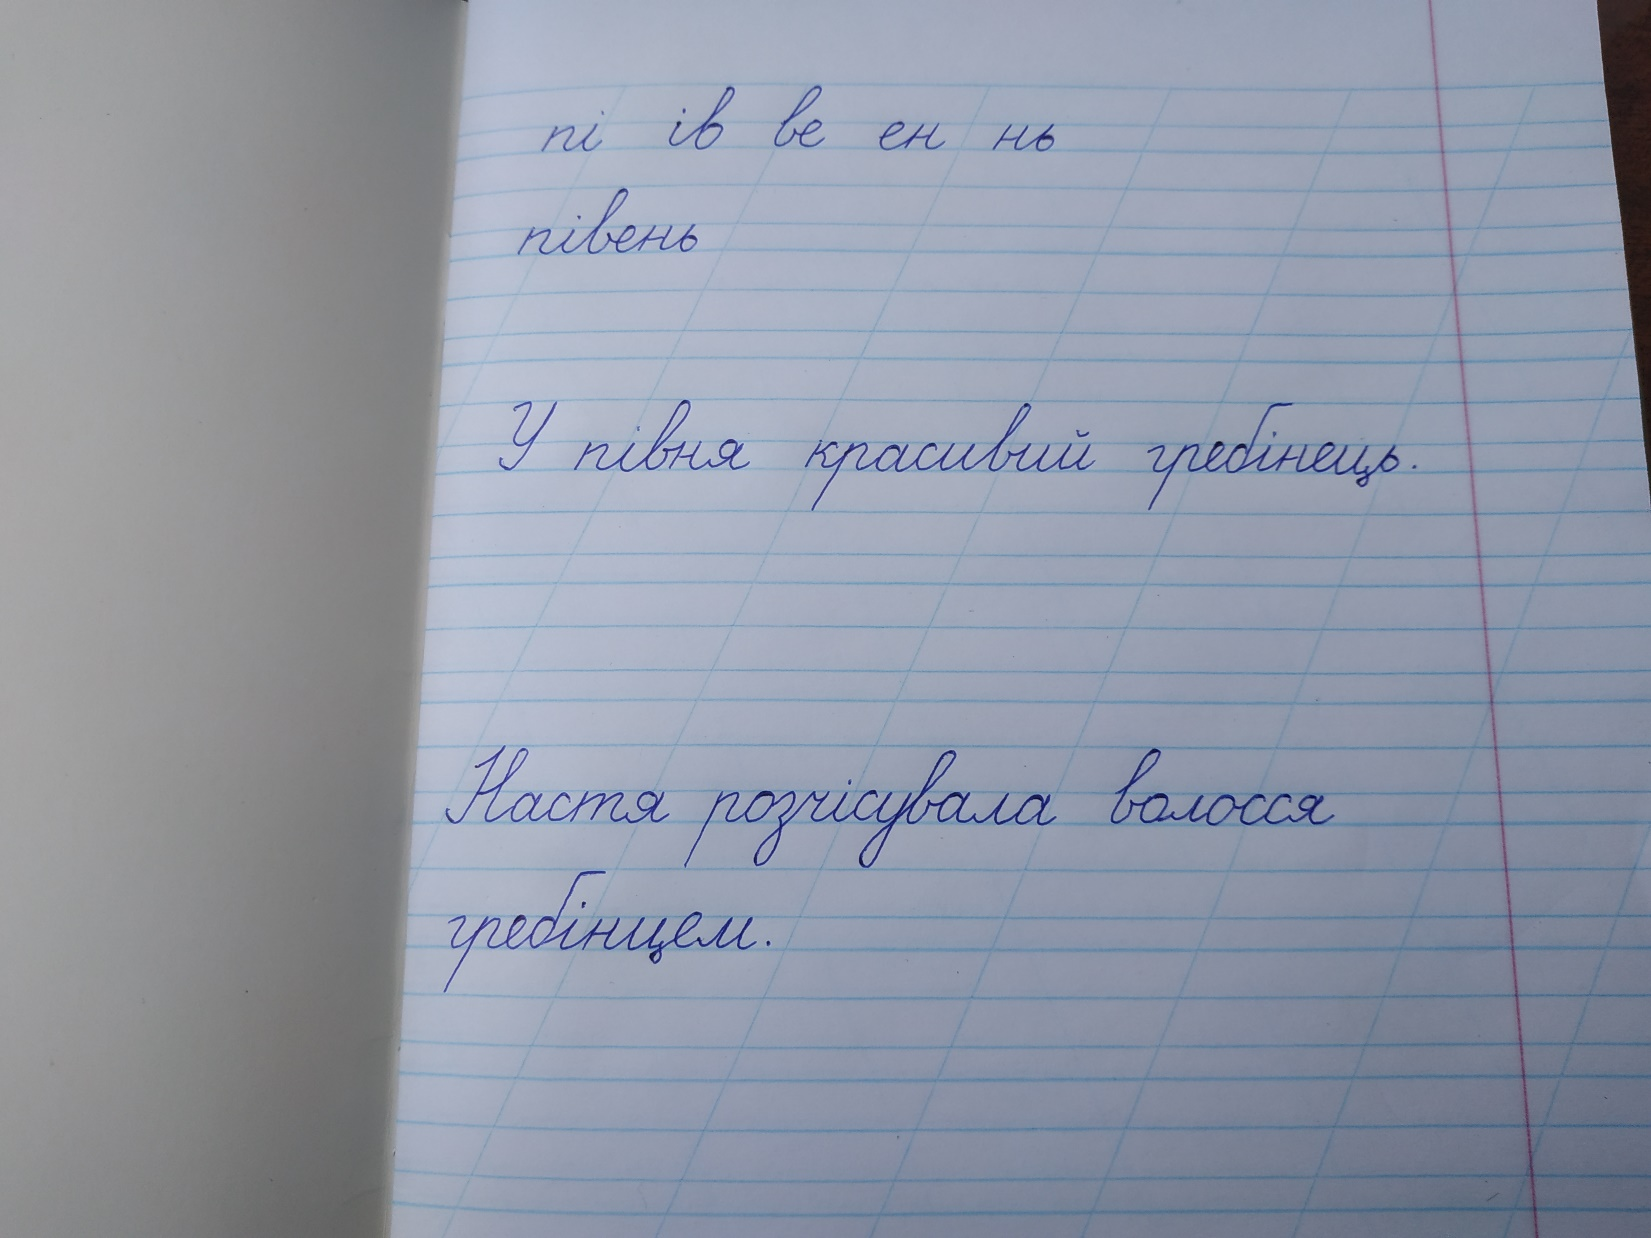 пі ів ве ен нь
півень
У півня красивий гребінець.
Настя розчісувала волосся
гребінцем.